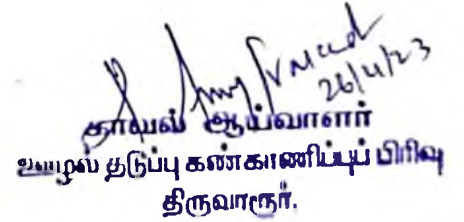 26/4/23
காவல் ஆய்வாளர்
ஊழல் தடுப்பு கண்காணிப்புப் பிரிவு
திருவாரூர்.